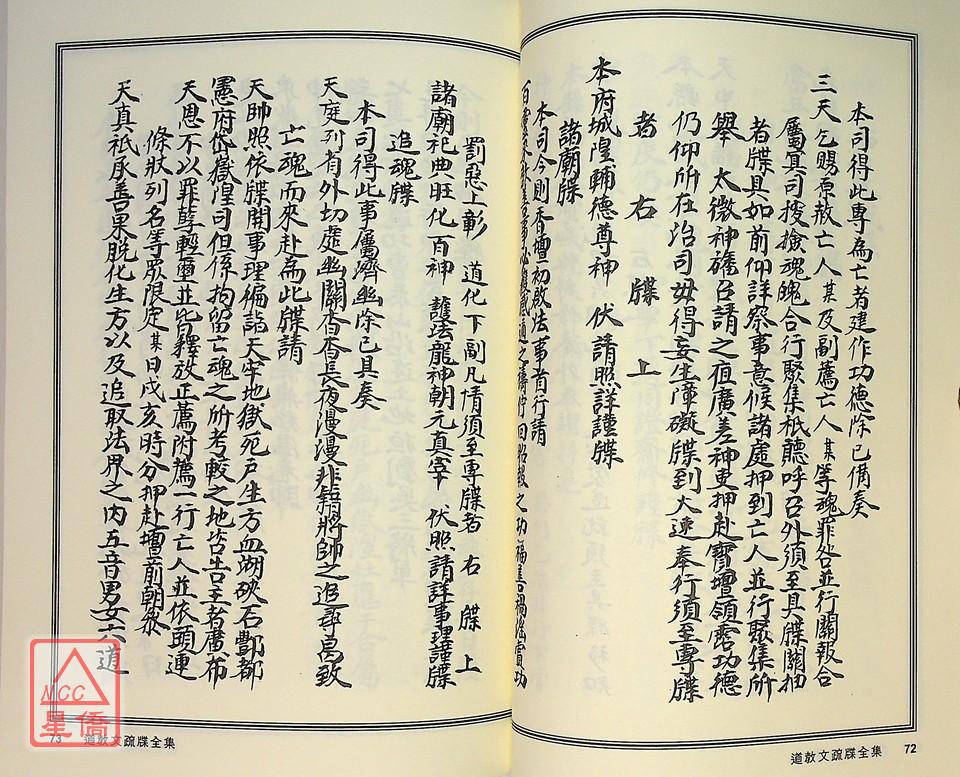 本司得此專為亡者建作功德除已備奏
三天乞賜原赦亡人某及副薦亡人某等魂罪咎並行關報合
屬冥司搜撿魂魄合行聚集祇聽呼召外須至具牒關抽
者牒具如前仰詳察事意候諸處押到亡人並行聚集所
舉 太微神旛召請之徊廣差神吏押赴寶壇領霑功德
仍仰所在治司毋得妄生障礙牒到火速奉行須至專牒
者 右 牒 上
本府城隍輔德尊神 伏請照詳謹牒
諸廟牒
本司今則香壇初啟法事首行請
之禱佇回昭報之功福善禍淫賞功
罰惡上彰 道化下副凡情須至專牒者 右 牒 上
諸廟祀典旺化百神 護法龍神朝元真宰 伏照請詳事理謹牒
追魂牒
本司得此事屬濟幽除已具奏
天庭列有外切處幽關杳杳長夜漫漫非籍將帥之追尋曷致
亡魂而來赴為此牒請
天帥照依牒開事理徧詣天牢地獄死戶生方血湖硤石酆都
憲府岱嶽隍司但係拘留亡魂之所考較之地皆告王者廣布
天恩不以罪孽輕重並皆釋放正薦附薦一行亡人並依頭連
條狀列名等眾限定某日戌亥時分押赴壇前朝參
天真祇承善果脫化生方以及追取法界之內五音男女六道
NCC
星僑
73 道教文疏牒全集
道教文疏牒全集 72